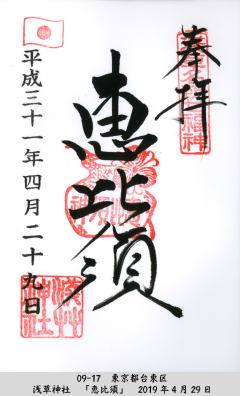 奉拝
恵比須
平成三十一年四月二十九日
浅草神社
09-17 東京都台東区
浅草神社 「恵比須」 2019年4月29日